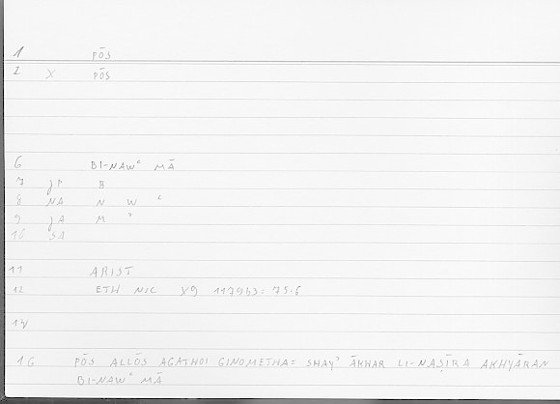 1 PŌS
2 X PŌS
6 BI-NAWʿ MĀ
7 JP B
8 NA N W ʿ
9 JA M ʾ
10 SA
11 ARIST
12 ETH NIC 89 1179b3 = 75.6
14
16 PŌS ALLŌS AGATHOI GINOMETHA = SHAYʾ ĀKHAR LI-NAṢĪRA AKHYĀRAN
BI-NAWʿ MĀ